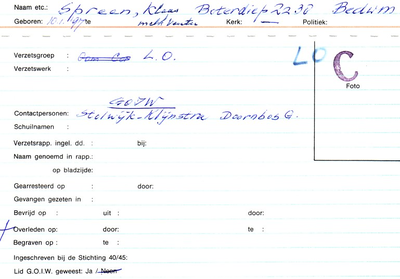 Naam etc.: Spreen, Klaas Boterdiep 2230 Bedum
Geboren: te Kerk: — Politiek:
Verzetsgroep : L.O. LO C
Verzetswerk :
Foto
GOIW
Contactpersonen: Stolwijk-Klijnstra Doornbos G.
Schuilnamen :
Verzetsrapp. ingel. dd. : bij:
Naam genoemd in rapp.:
op bladzijde:
Gearresteerd op : door:
Gevangen gezeten in :
Bevrijd op : uit : door:
Overleden op: door: te :
Begraven op : te :
Ingeschreven bij de Stichting 40/45:
Lid G.O.I.W. geweest: Ja / Neen